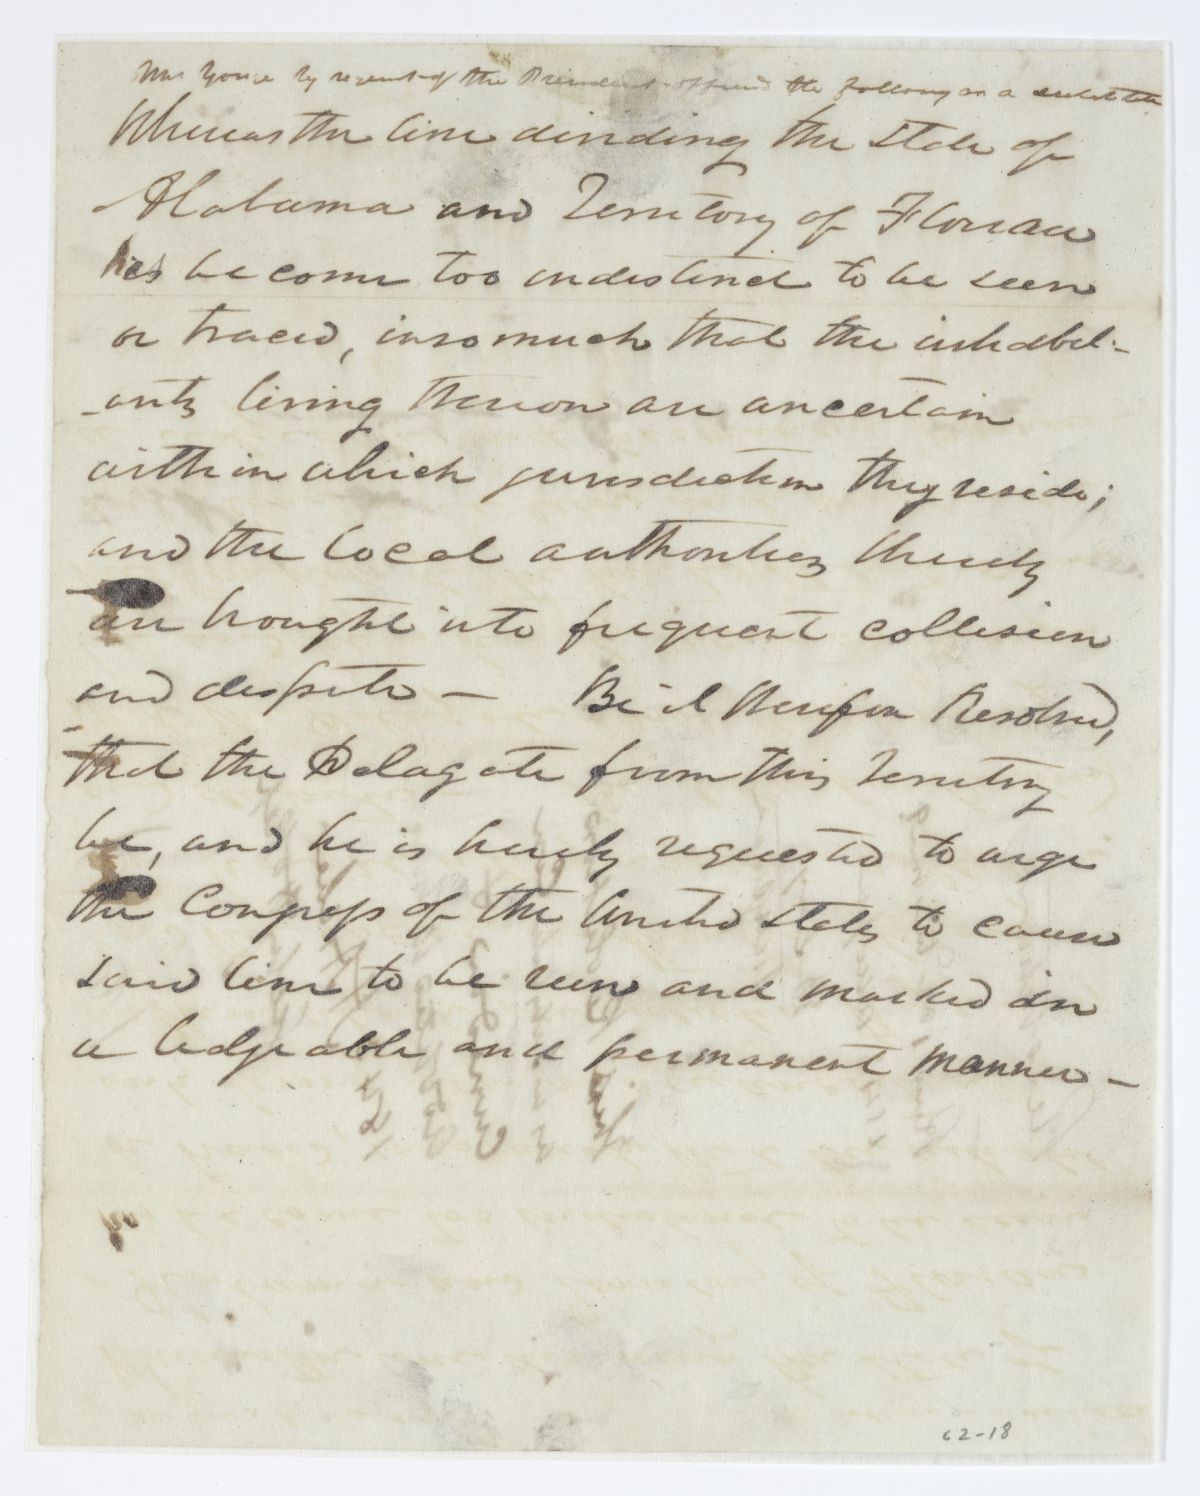 Mr Yonge by request of the President offered the following as a substitute
Whereas the line dividing the State of
Alabama and Territory of Florida
has become too indistinct to be seen
or traced, insomuch that the inhabit-
-ants living thereon are uncertain
within which jurisdiction they reside;
and the local authorities thereby
are brought into frequent collision
and dispute — Be it therefore Resolved,
that the Delagate from this Territory
be, and he is hereby requested to urge
the Congress of the United States to cause
said line to be run and marked in
a ledgeable and permanent manner —
62-18